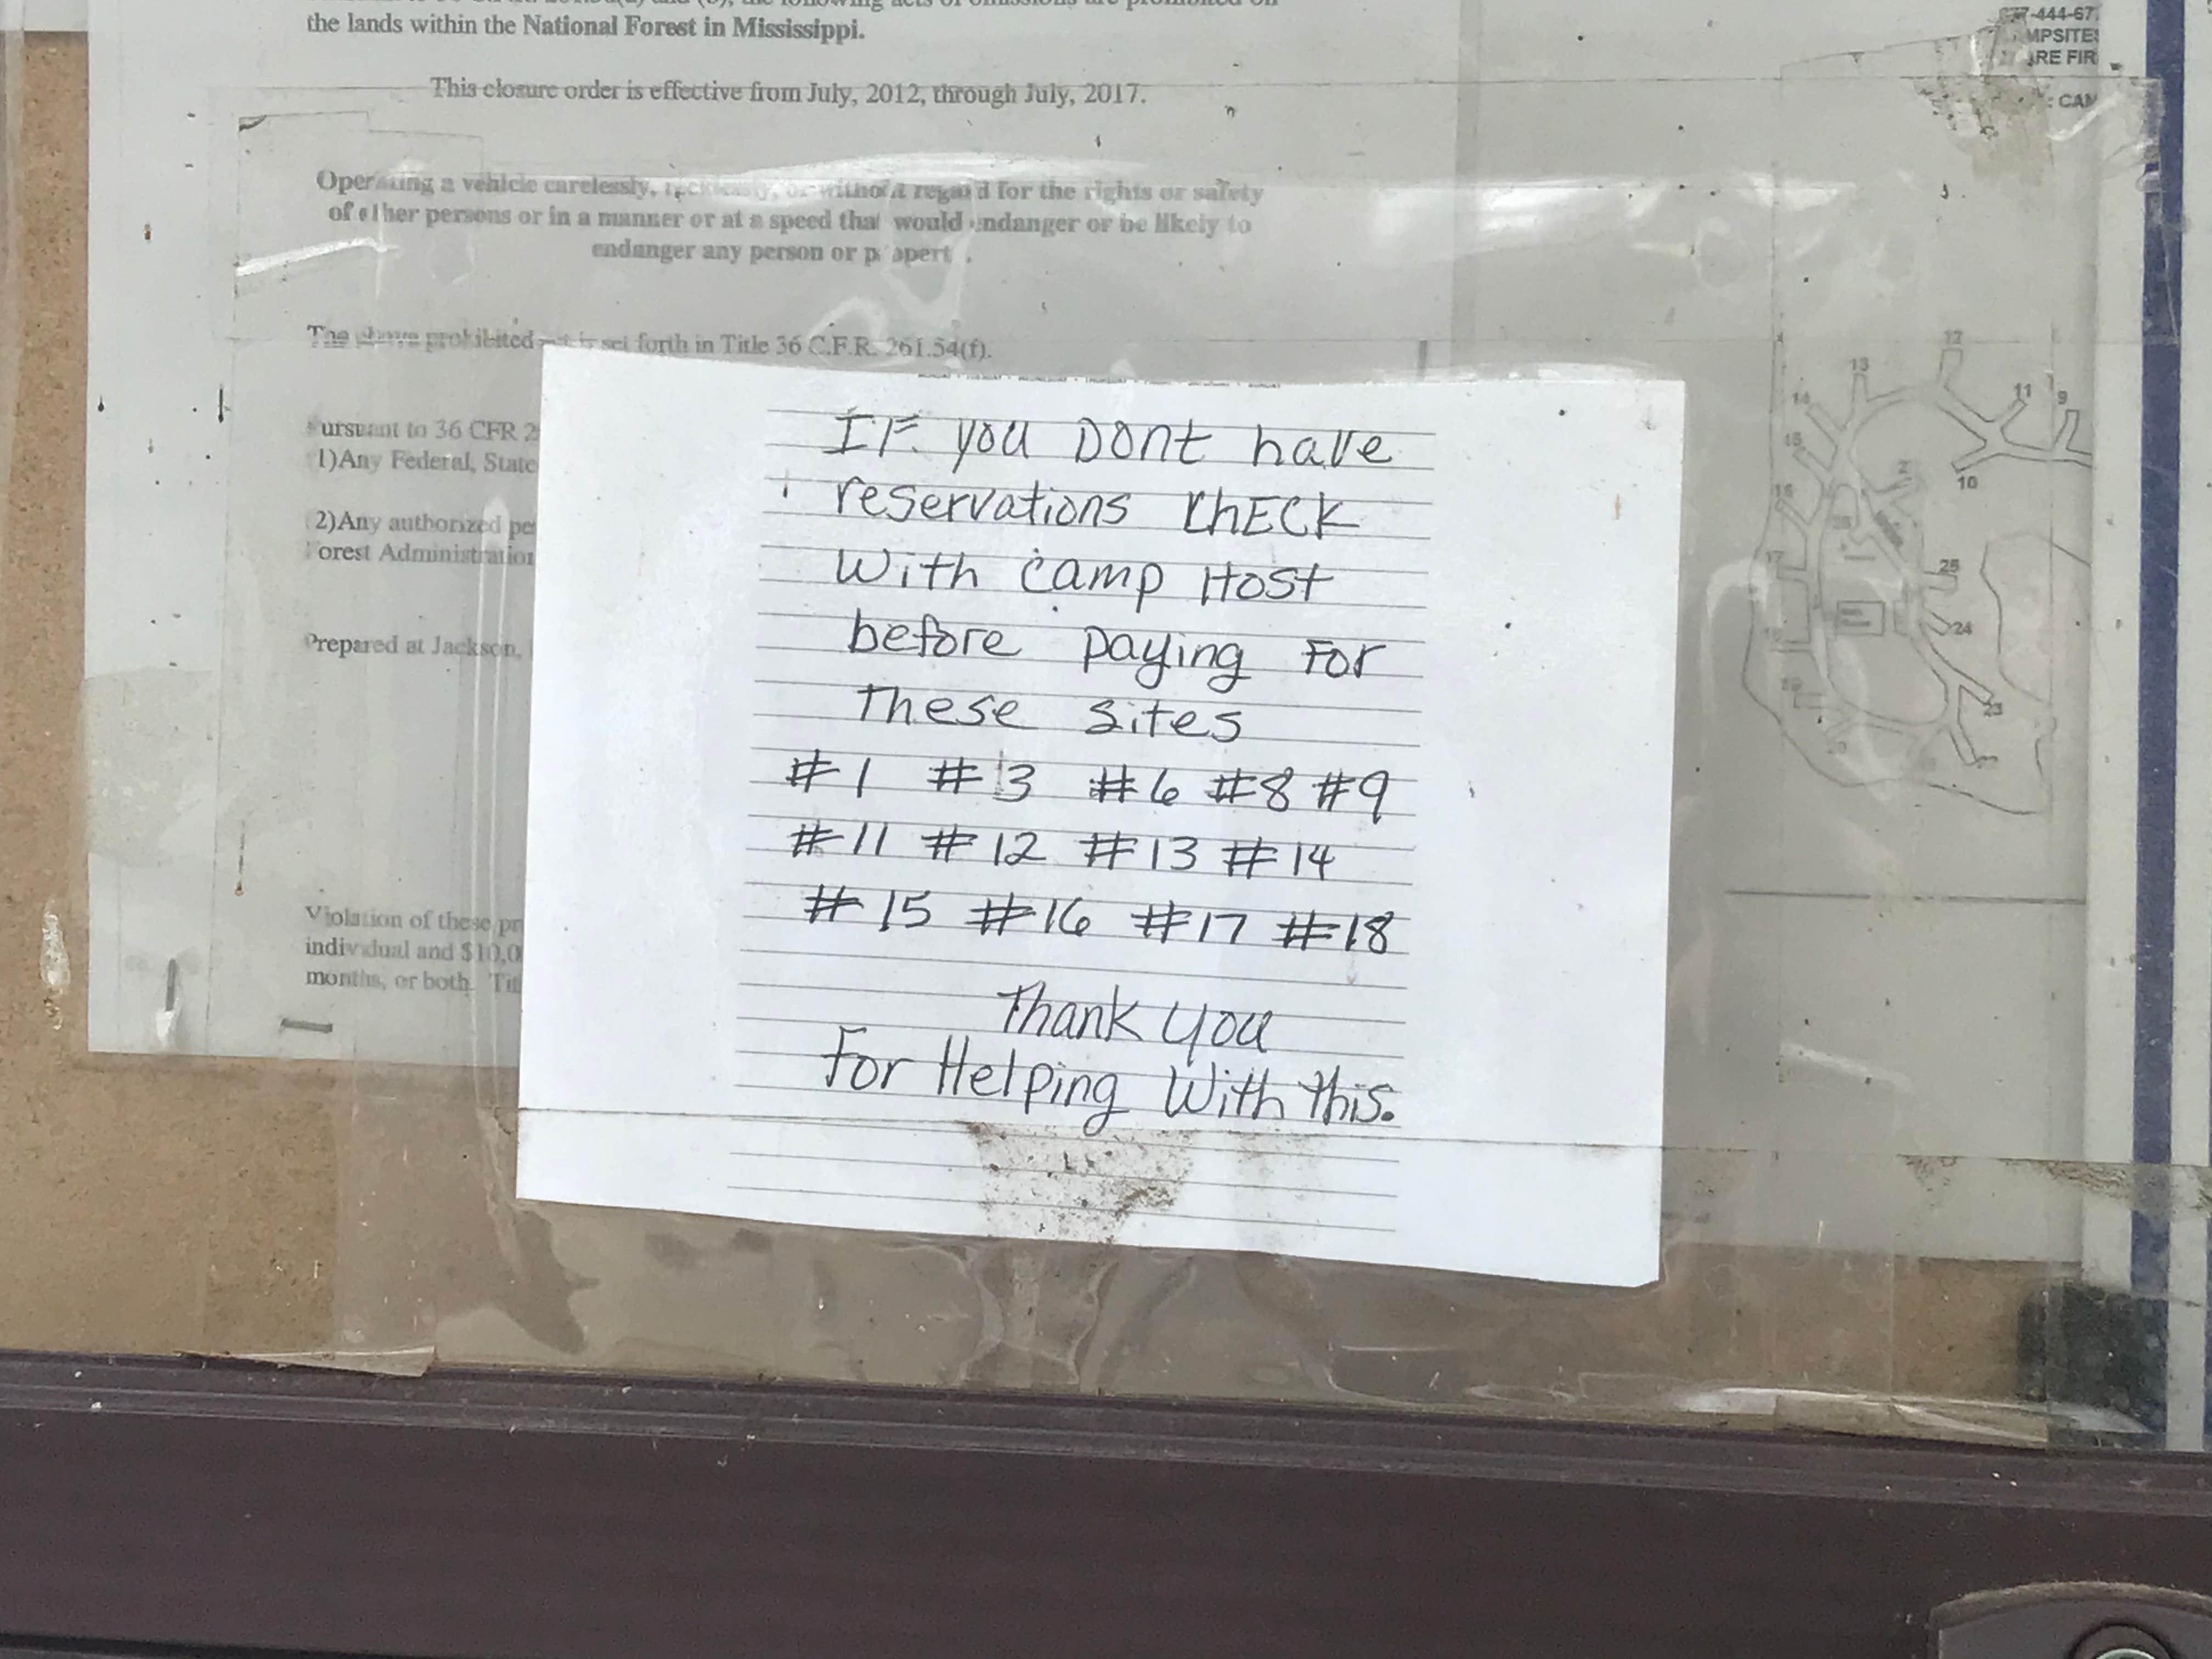 the lands within the National Forest in Mississippi.
This closure order is effective from July, 2012, through July, 2017.
Operating a vehicle carelessly, recklessly, or without regard for the rights or safety
of other persons or in a manner or at a speed that would endanger or be likely to
endanger any person or property.
The above prohibited act is set forth in Title 36 C.F.R. 261.54(f).
Pursuant to 36 CFR 2
1)Any Federal, State
2)Any authorized pe
Forest Administration
Prepared at Jackson,
Violation of these pr
individual and $10,0
months, or both. Tit
IF you DONt have
reservations ChECK
With camp Host
before paying For
These sites
#1 #3 #6 #8 #9
#11 #12 #13 #14
#15 #16 #17 #18
Thank you
For Helping With this.
-444-67
MPSITES
RE FIR
: CAM
12
13
11 9
14
15
2
10
16
17
25
24
23
20